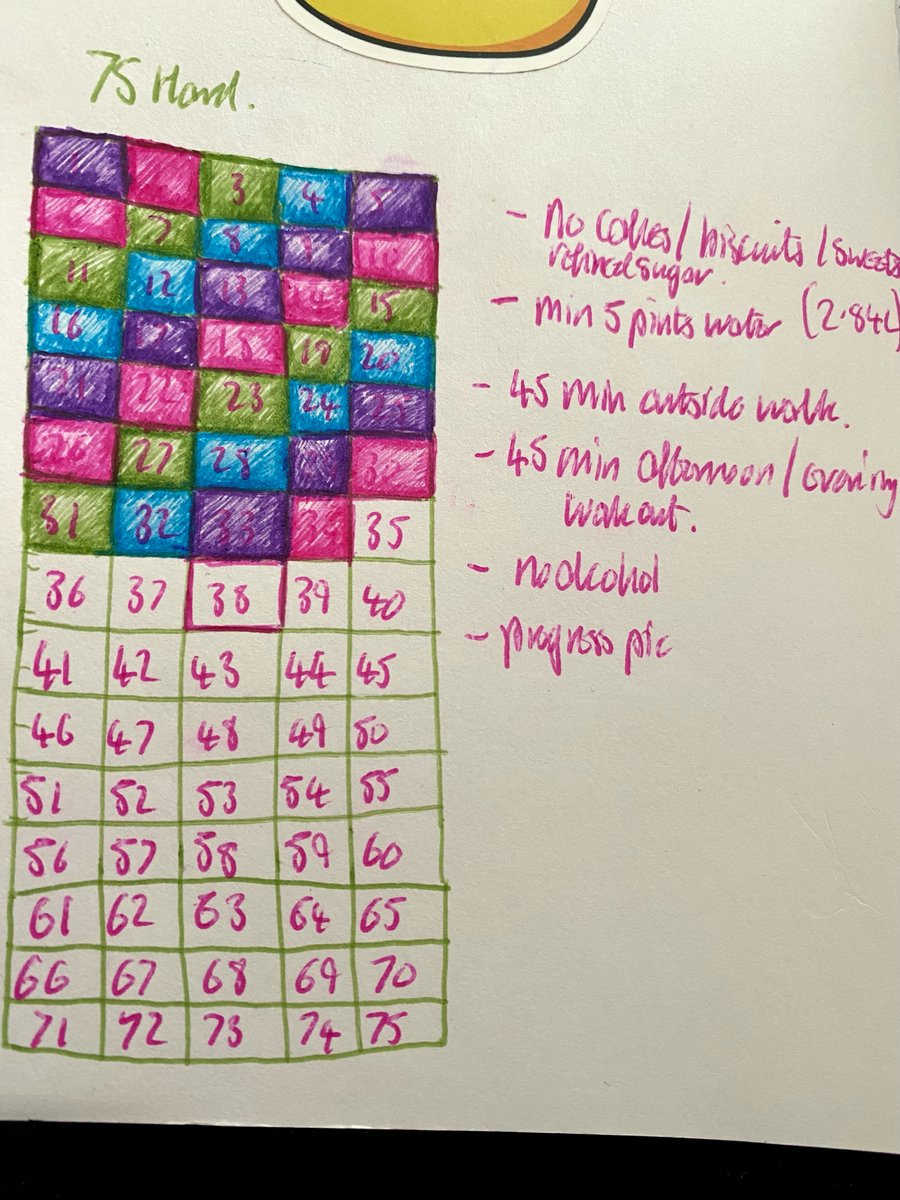 75 Hard.
3 4 5
7 8 9 10
11 12 13 14 15
16 17 18 19 20
21 22 23 24 25
26 27 28 29 30
31 32 33 34 35
36 37 38 39 40
41 42 43 44 45
46 47 48 49 50
51 52 53 54 55
56 57 58 59 60
61 62 63 64 65
66 67 68 69 70
71 72 73 74 75
- no cakes/biscuits/sweets
refined sugar.
- min 5 pints water (2.84L)
- 45 min outside walk.
- 45 min afternoon/evening
workout.
- no alcohol
- progress pic